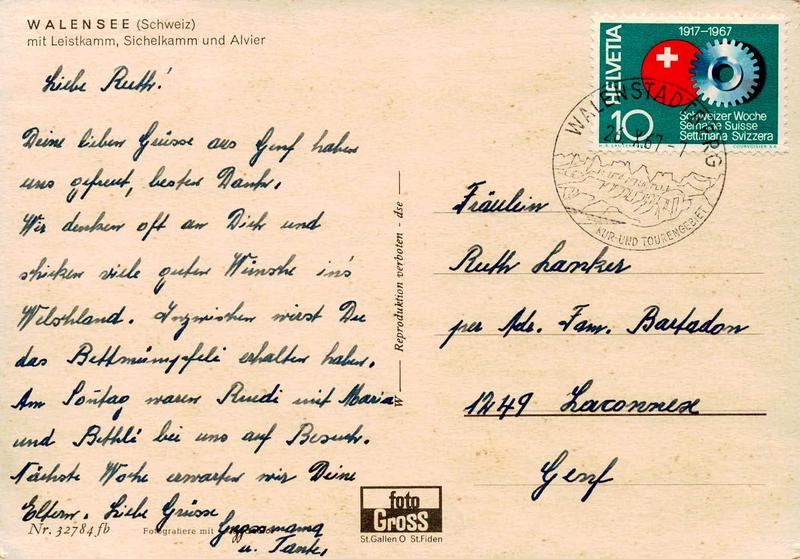 WALENSEE (Schweiz)
mit Leistkamm, Sichelkamm und Alvier
Liebe Ruth!
Deine lieben Grüsse aus Genf haben
uns gefreut, besten Dank.
Wir denken oft an Dich und
schicken viele guten Wünsche in's
Welschland. Inzwischen wirst Du
das Bettmümpfeli erhalten haben.
Am Sonntag waren Ruedi mit Maria
und Bethli bei uns auf Besuch.
Nächste Woche erwarten wir Deine
Eltern. Liebe Grüsse
Grossmama
u. Tante.
Nr. 32784 fb
Fotografiere mit
foto
GROSS
St.Gallen O St.Fiden
W — Reproduktion verboten - dse —
HELVETIA
1917-1967
10
Schweizer Woche
Semaine Suisse
Settimana Svizzera
COURVOISIER S.A.
WALENSTADTBERG
X.67
KUR- UND TOURENGEBIET
Fräulein
Ruth Lanker
per Adr. Fam. Bartadon
1249 Laconnex
Genf